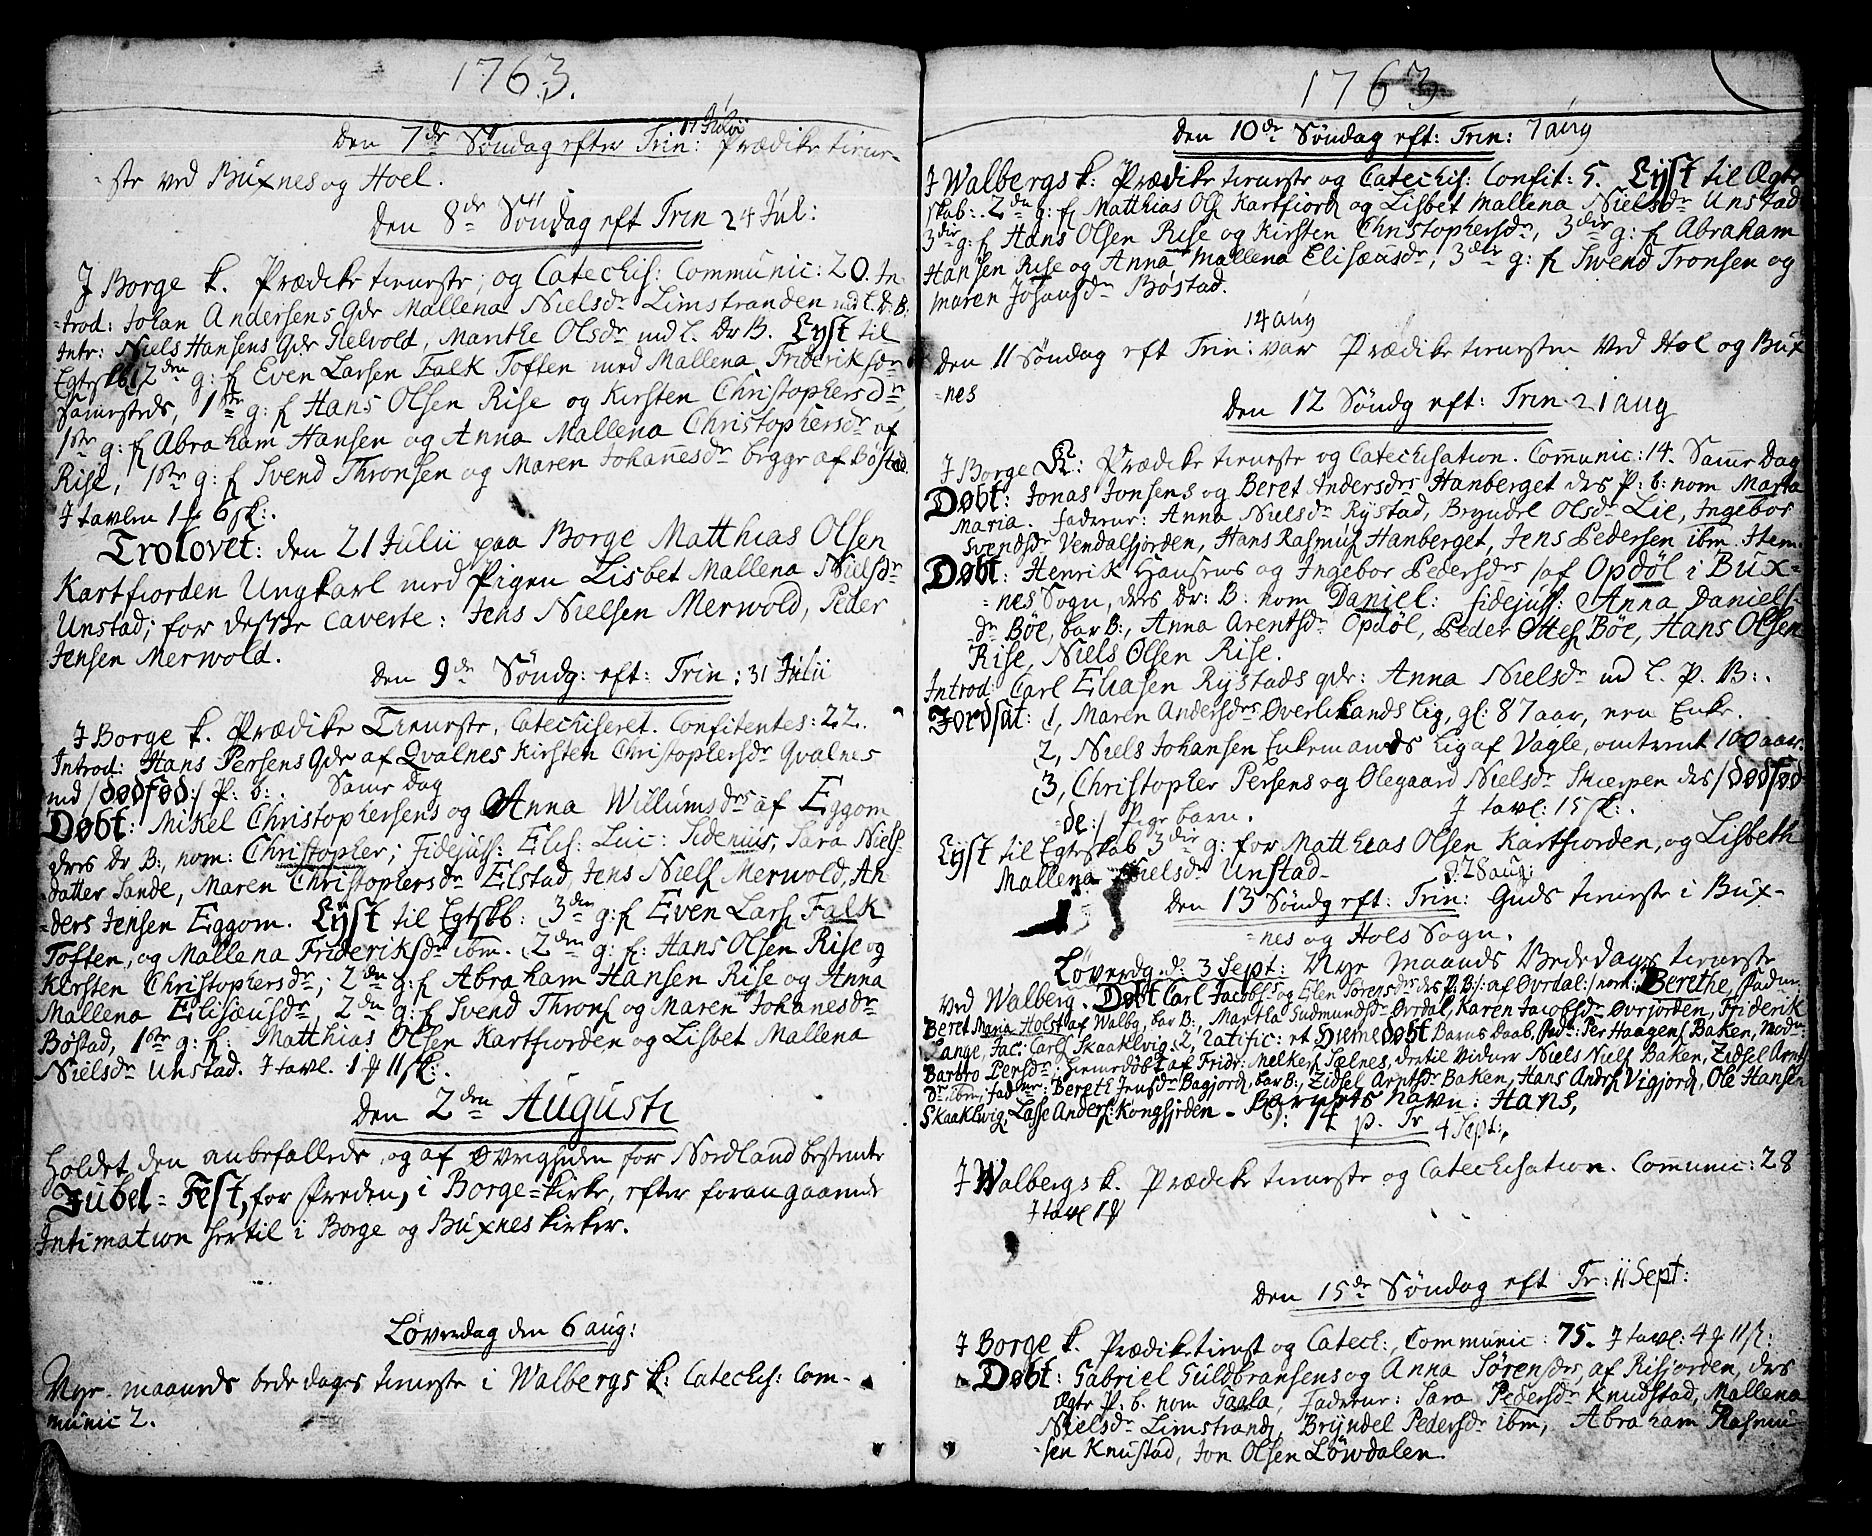 1763.
Den 7de Søndag efter Trin: 17 Julii Prædike tienes-
-ste ved Buxnes og Hoel.
Den 8de Søndag eft Trin 24 Jul:
J Borge k. Prædike tieneste, og Catechis: Communic: 20. In-
-trod: Johan Andersens Qde Mallena Nielsdr Limstranden md l. D: B:
Intr: Niels Hansens Qde Helvold, Marithe Olsdr md l. Dr B. Lyst til
Egteskb: 2den g: f Even Larsen Falk Toften med Mallena Frideriksdr
Sammesteds, 1ste g: f Hans Olsen Rise og Kirsten Christophersdr,
1ste g: f Abraham Hansen og Anna Mallena Christophersdr af
Rise, 1ste g: f Svend Thronsen og Maren Johannesdr begge af Bøstad.
J tavlen 1 # 6 sk:.
Trolovet: den 21 Julii paa Borge Matthias Olsen
Kartfiorden Ungkarl med Pigen Lisbet Mallena Nielsdr
Unstad; for desse caverte: Jens Nielsen Merwold, Peder
Jensen Merwold.
Den 9de Søndg: eft: Trin: 31 Julii
J Borge k. Prædike Tieneste, Catechiseret. Confitentes: 22.
Introd: Hans Persens Qde af Qvalnes Kirsten Christophersdr Qvalnes
md /:dødfød:/ P: b:. Same Dag
Døbt: Mikel Christophersens og Anna Willumsdrs af Eggom
deres Dr B:, nom: Christopher; Fidejuss: Elis: Luc: Sidenius, Sara Niels-
datter Sande, Maren Christophersdr Elstad, Jens Niels Merwold, An-
-ders Jensen Eggom. Lyst til Egtskb: 3den g: f Even Lars Falk
Toften, og Mallena Frideriksdr ibm. 2den g: f: Hans Olsen Rise og
Kirsten Christophersdr; 2den g: f Abraham Hansen Rise og Anna
Mallena Elisæusdr, 2den g: f Svend Throns og Maren Johanesdr
Bøstad, 1ste g: f: Matthias Olsen Kartfiorden og Lisbet Mallena
Nielsdr Unstad. J tavl. 1 # 11 sk:.
Den 2den Augusti
holdet den anbefallede, og af Øvrigheden for Nordland bestemte
Jubel-Fest, for Freden, i Borge-kirke, efter forangaaende
Intimation hertil i Borge og Buxnes kirker.
Løverdag den 6 aug:
Nye-maaneds bede dages tieneste i Walbergs k: Catechis: Com-
munic 2.
1763
Den 10de Søndag eft: Trin: 7 aug
J Walbergs k: Prædike tieneste og Catechis: Confit: 5. Lyst til Ægte
skab: 2den g: f Matthias Ols Kartfiord og Lisbet Mallena Nielsdr Unstad
3die g: f Hans Olsen Rise og Kirsten Christophersdr, 3die g: f Abraham
Hansen Rise og Anna Mallena Elisæusdr, 3die g: f Swend Tronsen og
Maren Johansdr Bøstad.
14 aug
Den 11 Søndag eft Trin: var Prædike tienesten ved Hol og Bux
-nes
Den 12 Søndg eft: Trin 21 aug
J Borge K: Prædike tieneste og Catechisation. Comunic: 14. Same Dag
Døbt: Jonas Jonsens og Beret Andersdrs Hanberget des P: b: nom Maria
Maria. Faderne: Anna Nielsdr Rystad, Bryndel Olsdr Lie, Ingebor
Svendsdr Vendalsjorden, Hans Rasmus Hanberget, Jens Pedersen ibm. Item.
Døbt: Henrik Hansens og Ingebor Pedersdrs /af Opdøl i Bux-
-nes Sogn, deres Dr: B: nom Daniel: Fidejuss: Anna Daniels-
dr Bøe, bar B:, Anna Arentsdr Opdøl, Peder Ottes Bøe, Hans Olsen
Rise, Niels Olsen Rise.
Introd: Carl Eliasen Rystads qde: Anna Nielsdr md l. P. B:.
Jordsat: 1, Maren Andersdrs Øverliekands Lig, gl: 87 aar, een Enke.
2, Niels Johansen Enkemands Lig af Vagle, omtrent 100 aar.
3, Christopher Persens og Olegaard Nielsdr Skierpen des /:dødfød-
-de:/ Pige barn. J tavl: 15 sk:.
Lyst til Egteskab 3die g: for Matthias Olsen Kartfiorden, og Lisbeth
Mallena Nielsdr Unstad-
d: 28 aug:
Den 13 Søndg eft: Trin: Guds tieneste i Bux-
-nes og Hols Sogn.
Løverdg d: 3 Sept: Nye Maaneds Bededags tieneste
ved Walberg. Døbt Carl Jacobs: og Elen Sørensdrs des P: B:/: af Øvrdal:/ nom: Berethe, Fadere:
Beret Maria Holst af Walbg, bar B:, Martha Gudmundsdr Øvrdal, Karen Jacobsdr Øvrjorden, Friderik
Lange, Jac: Carls Skaaklvig. 2, ratific: et Hiemedøbt Barns Daab, Fadr: Per Haagens Baken, Modr
Barbro Persdr: hiemedøbt af Fridr: Melkers Sælnes, dertil vidner Niels Niels Baken, Zidsel Arnts
dr ibm, Fadrne: Bereth Jensdr Bagjord, bar B:, Zidsel Arntsdr Baken, Hans Anders Vigjord, Ole Hansen
Skaaklwig, Lasse Anders: Kongsjorden - Barnets Navn: Hans,
D: 14 p. Tr 4 Sept:
J Walbergs k. Prædike tieneste og Catechisation. Communic: 28
J tavl 1 #
Den 15de Søndag eft Tr: 11 Sept:
J Borge k. Prædiketienest og Catech:, Communic: 75. J tavl: 4 # 11 sk:
Døbt: Gabriel Guldbransens og Anna Sørensdrs, af Risjorden, des
Ægte P: b. nom Taala, Faderne: Sara Pedersdr Knudstad, Mallena
Nielsdr Limstrand, Bryndel Pedersdr ibm, Abraham Rasmu-
-sen Knustad, Jon Olsen Løwdalen.